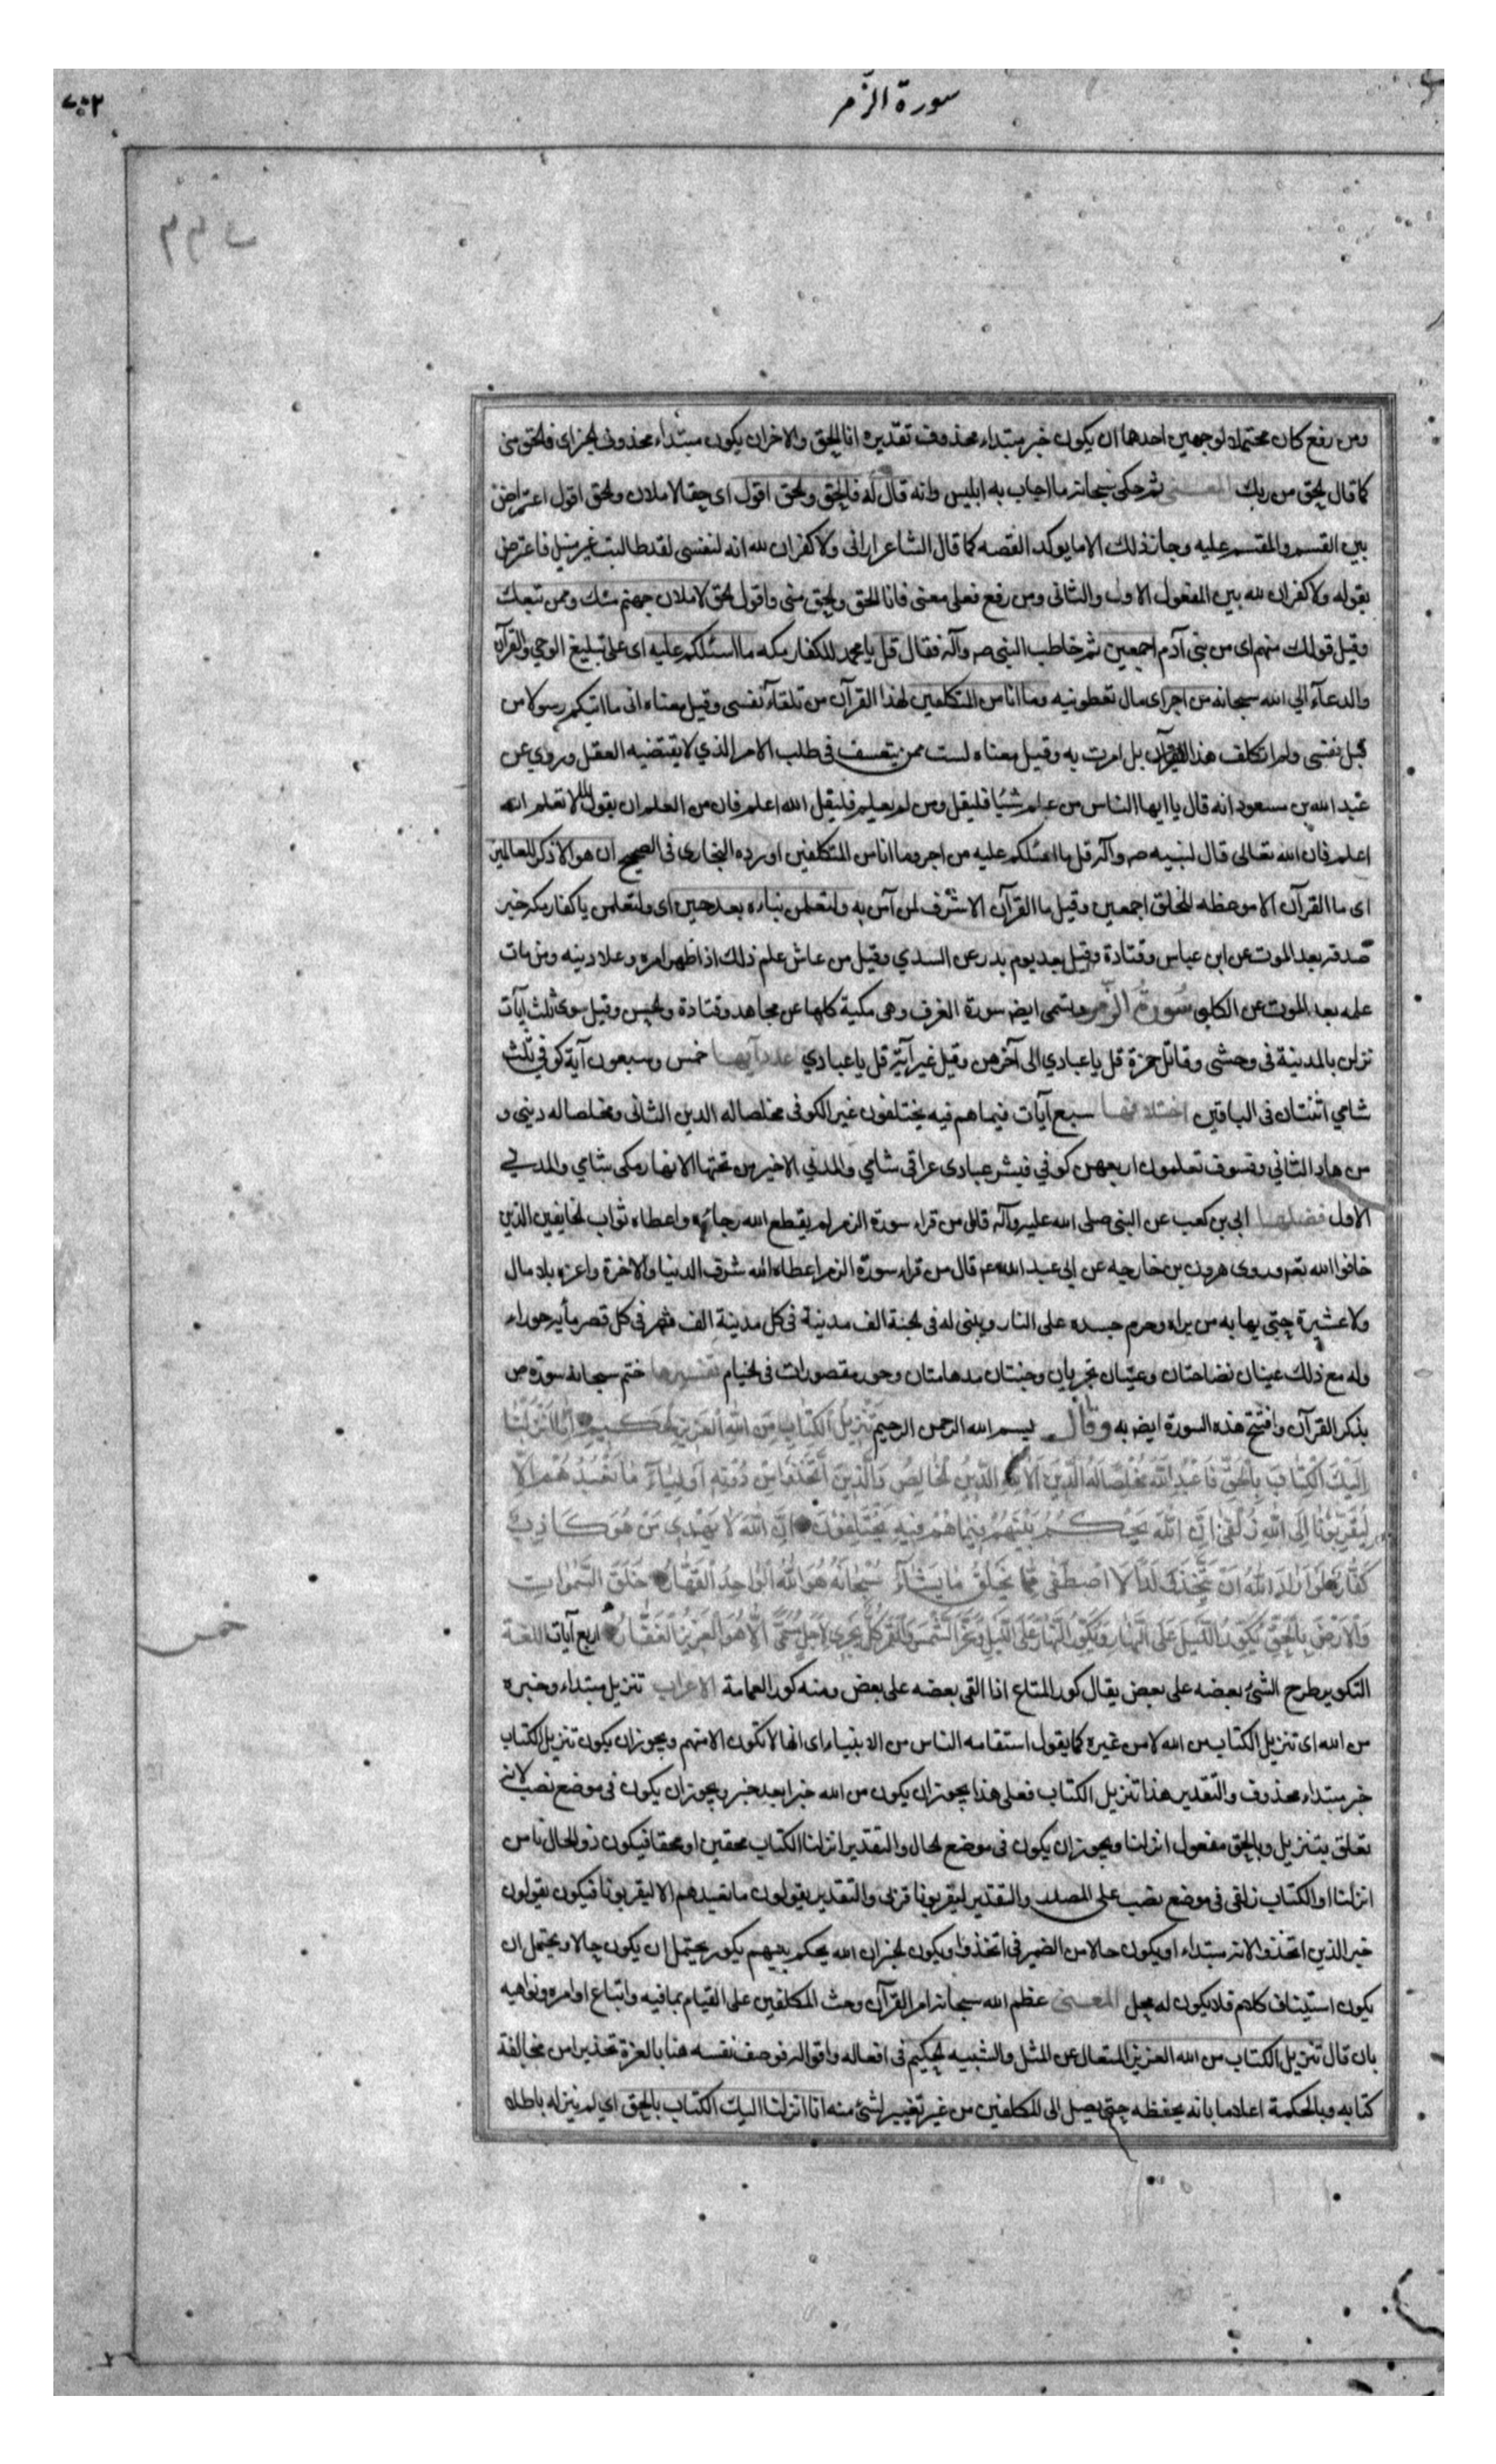 سورة الزمر
ومن رفع كان محتملا لوجهين احدهما ان يكون خبر مبتداء محذوف تقديره انا الحق والاخر ان يكون مبتداء محذوف الخبر اى فالحق منى
كما قال الحق من ربك المعنى ثم حكى سبحانه ما اجاب به ابليس وانه قال له فالحق والحق اقول اى حقا لاملان والحق اقول اعتراض
بين القسم والمقسم عليه وجاز ذلك لانه مما يوكد القصه كما قال الشاعر ارانى ولا كفران لله انه لنفسى لقد طالبت غير منيل فاعترض
بقوله ولا كفران لله بين المفعول الاول والثانى ومن رفع فعلى معنى فانا الحق والحق منى واقول الحق لاملان جهنم منك وممن تبعك
وقيل قولك منهم اى من بنى آدم اجمعين ثم خاطب النبى صه وآله فقال قل يا محمد للكفار مكه ما اسئلكم عليه اى على تبليغ الوحي والقرآن
والدعآء الي الله سبحانه من اجر اى مال تعطونيه وما انا من المتكلفين لهذا القرآن من تلقآء نفسى وقيل معناه انى ما اتيتكم رسولا من
قبل نفسى ولم اتكلف هذا القرآن بل امرت به وقيل معناه لست ممن يتعسف فى طلب الامر الذي لا يقتضيه العقل وروي عن
عبد الله بن مسعود انه قال يا ايها الناس من علم شيئا فليقل ومن لم يعلم فليقل الله اعلم فان من العلم ان يقول لما لا تعلم الله
اعلم فان الله تعالى قال لنبيه صه وآله قل ما اسئلكم عليه من اجر وما انا من المتكلفين اورده البخارى فى الصحيح ان هو الا ذكر للعالمين
اى ما القرآن الا موعظه للخلق اجمعين وقيل ما القرآن الا شرف لمن آمن به ولتعلمن نباءه بعد حين اى ولتعلمن يا كفار مكه خبر
صدقه بعد الموت عن ابن عباس وقتادة وقيل بعد يوم بدر عن السدي وقيل من عاش علم ذلك اذا ظهر امره وعلا دينه ومن مات
علمه بعد الموت عن الكلبى سورة الزمر وتسمى ايضا سورة الغرف وهى مكية كلها عن مجاهد وقتادة والحسن وقيل سوى ثلث آيات
نزلن بالمدينة فى وحشى وقاتل حمزة قل يا عبادي الى آخرهن وقيل غير آية قل يا عبادي عدد آيها خمس وسبعون آية كوفي ثلث
شامي اثنتان فى الباقين اختلافها سبع آيات فيما هم فيه يختلفون غير الكوفى مخلصا له الدين الثانى ومخلصا له دينى و
من هاد الثاني وفسوف تعلمون اربعهن كوفي فبشر عبادى عراقى شامي والمدني الاخير من تحتها الانهار مكى شامي والمدني
الاول فضلها ابى بن كعب عن النبى صلى الله عليه وآله قال من قراء سورة الزمر لم يقطع الله رجاءه واعطاه ثواب الخايفين الذين
خافوا الله تعه وروى هرون بن خارجه عن ابى عبد الله عه قال من قراء سورة الزمر اعطاه الله شرف الدنيا والاخرة واعزه بلا مال
ولا عشيرة حتى يهابه من يراه وحرم جسده على النار ويبنى له فى الجنة الف مدينة فى كل مدينة الف قصر فى كل قصر مأية حوراء
وله مع ذلك عينان نضاختان وعينان تجريان وجنتان مدهامتان وحور مقصورات فى الخيام تفسيرها ختم سبحانه سورة ص
بذكر القرآن وافتتح هذه السورة ايضا به وقال بسم الله الرحمن الرحيم تنزيل الكتاب من الله العزيز الحكيم انا انزلنا
اليك الكتاب بالحق فاعبد الله مخلصا له الدين الا لله الدين الخالص والذين اتخذوا من دونه اوليآء ما نعبدهم الا
ليقربونا الى الله زلفى ان الله يحكم بينهم فيما هم فيه يختلفون ان الله لا يهدى من هو كاذب
كفار لو اراد الله ان يتخذ ولدا لاصطفى مما يخلق ما يشآء سبحانه هو الله الواحد القهار خلق السموات
والارض بالحق يكور الليل على النهار ويكور النهار على الليل وسخر الشمس والقمر كل يجرى لاجل مسمى الا هو العزيز الغفار اربع آيات اللغة
خمس
التكوير طرح الشئ بعضه على بعض يقال كور المتاع اذا القى بعضه على بعض ومنه كور العمامة الاعراب تنزيل مبتداء وخبره
من الله اى تنزيل الكتاب من الله لا من غيره كما يقول استقامه الناس من الانبياء اى انها لا تكون الا منهم ويجوز ان يكون تنزيل الكتاب
خبر مبتداء محذوف والتقدير هذا تنزيل الكتاب فعلى هذا يجوز ان يكون من الله خبرا بعد خبر ويجوز ان يكون فى موضع نصب لانه
تعلق بتنزيل وبالحق مفعول انزلنا ويجوز ان يكون فى موضع الحال والتقدير انزلنا الكتاب محقين او محقا فيكون ذو الحال نا من
انزلنا او الكتاب زلفى فى موضع نصب على المصدر والتقدير ليقربونا قربى والتقدير يقولون ما نعبدهم الا ليقربونا فيكون يقولون
خبر الذين اتخذوا لانه مبتداء او يكون حالا من الضمير فى اتخذوا ويكون الخبر ان الله يحكم بينهم يكور يحتمل ان يكون حالا ويحتمل ان
يكون استيناف كلام فلا يكون له محل المعنى عظم الله سبحانه امر القرآن وحث المكلفين على القيام بما فيه واتباع اوامره ونواهيه
بان قال تنزيل الكتاب من الله العزيز المتعال عن المثل والشبيه الحكيم فى افعاله واقواله فوصف نفسه هنا بالعزة تحذيرا من مخالفة
كتابه وبالحكمة اعلاما بانه يحفظه حتى يصل الى المكلفين من غير تغيير لشئ منه انا انزلنا اليك الكتاب بالحق اي لم ينزله باطلا